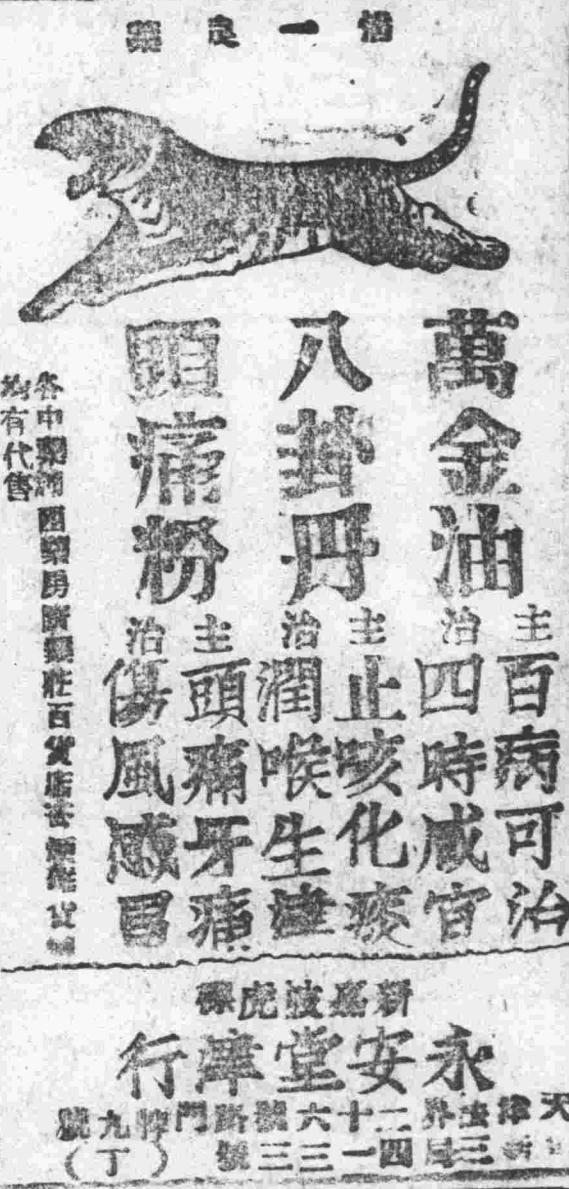 惟一良藥
萬金油
主治
百病可治
四時咸宜
八卦丹
主治
止咳化痰
潤喉生津
頭痛粉
主治
頭痛牙痛
傷風感冒
各中
百貨店
均有代售
新嘉坡虎標
永安堂津行
天津法
二十六號路
門牌九號
三局四一三三三號
（丁）